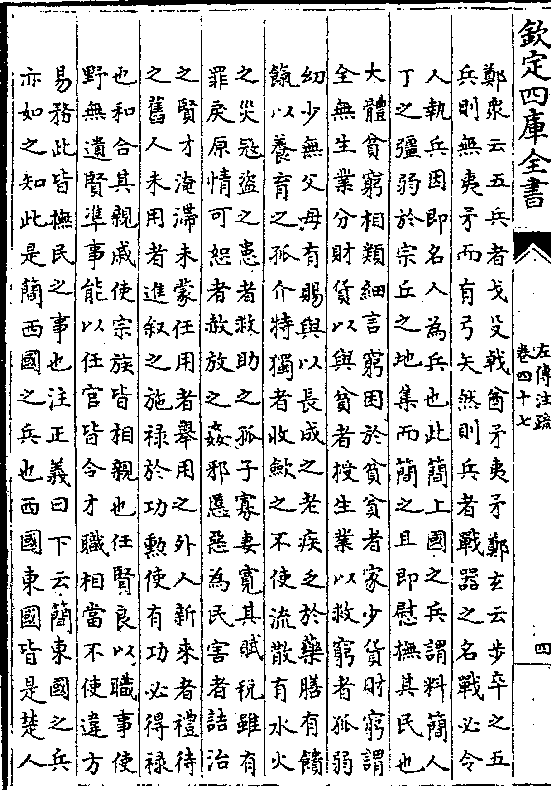 欽定四庫全書
左傳注疏
卷四十七
四
鄭衆云五兵者戈殳戟酋矛夷矛鄭玄云步卒之五
兵則無夷矛而有弓矢然則兵者戰器之名戰必令
人執兵因即名人為兵也此簡上國之兵謂料簡人
丁之彊弱於宗丘之地集而簡之且即慰撫其民也
大體貧窮相類細言窮困於貧貧者家少貨財窮謂
全無生業分財貨以與貧者授生業以救窮者孤弱
幼少無父母有賜與以長成之老疾乏於藥膳有饋
餼以養育之孤介特獨者收歛之不使流散有水火
之災宼盜之患者救助之孤子寡妻寛其賦稅雖有
罪戾原情可恕者赦放之姦邪慝惡為民害者詰治
之賢才淹滯未蒙任用者舉用之外人新來者禮待
之舊人未用者進叙之施禄於功勲使有功必得禄
也和合其親戚使宗族皆相親也任賢良以職事使
野無遺賢凖事能以任官皆令才職相當不使違方
易務此皆撫民之事也注正義曰下云簡東國之兵
亦如之知此是簡西國之兵也西國東國皆是楚人